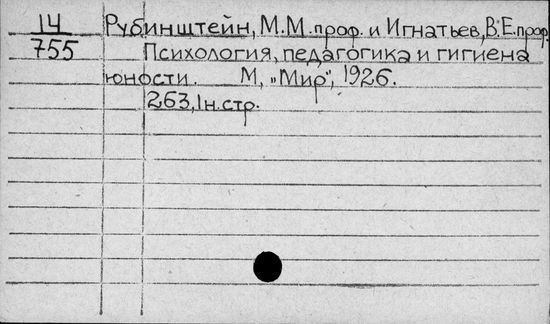 14 Рубинштейн, М.М.проф. и Игнатьев, В.Е.проф.
755 Психология, педагогика и гигиена
юности. М, „Мир", 1926.
263, 1н.стр.